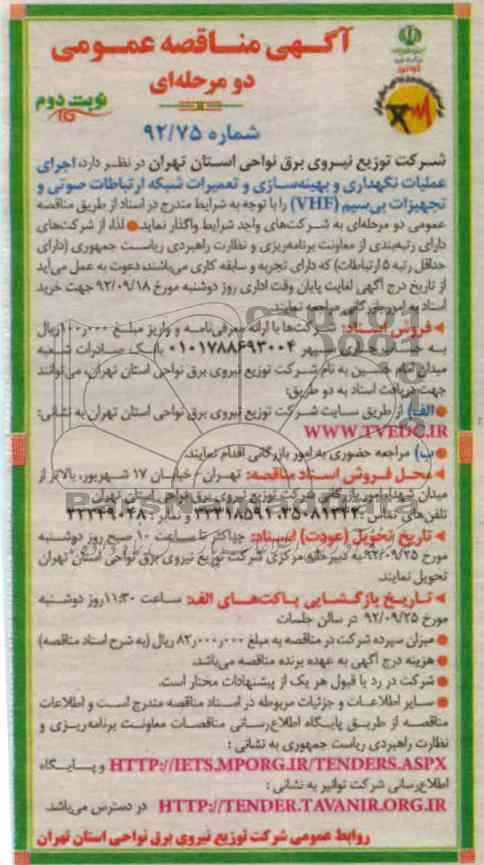 آگهی مناقصه عمومی
دو مرحله‌ای
نوبت دوم
شماره ۹۲/۷۵
شرکت توزیع نیروی برق نواحی استان تهران در نظر دارد، اجرای
عملیات نگهداری و بهینه‌سازی و تعمیرات شبکه ارتباطات صوتی و
تجهیزات بی‌سیم (VHF) را با توجه به شرایط مندرج در اسناد از طریق مناقصه
عمومی دو مرحله‌ای به شرکت‌های واجد شرایط واگذار نماید. لذا، از شرکت‌های
دارای رتبه‌بندی از معاونت برنامه‌ریزی و نظارت راهبردی ریاست جمهوری (دارای
حداقل رتبه ۵ ارتباطات) که دارای تجربه و سابقه کاری می‌باشند، دعوت به عمل می‌آید
از تاریخ درج آگهی لغایت پایان وقت اداری روز دوشنبه مورخ ۹۲/۰۹/۱۸ جهت خرید
اسناد به امور بازرگانی مراجعه نمایند.
فروش اسناد: شرکت‌ها با ارائه معرفی‌نامه و واریز مبلغ ۱۰۰،۰۰۰ ریال
به حساب جاری سپهر ۰۱۰۱۷۸۸۶۹۳۰۰۴ بانک صادرات شعبه
میدان امام حسین به نام شرکت توزیع نیروی برق نواحی استان تهران، می‌توانند
جهت دریافت اسناد به دو طریق:
الف) از طریق سایت شرکت توزیع نیروی برق نواحی استان تهران به نشانی:
WWW.TVEDC.IR
ب) مراجعه حضوری به امور بازرگانی اقدام نمایند.
محل فروش اسناد مناقصه: تهران - خیابان ۱۷ شهریور، بالاتر از
میدان شهدا، امور بازرگانی شرکت توزیع نیروی برق نواحی استان تهران
تلفن‌های تماس: ۳۵۰۸۱۳۴۲ - ۳۳۳۱۸۵۹۱ و نمابر: ۳۳۳۴۹۰۴۸
تاریخ تحویل (عودت) اسناد: حداکثر تا ساعت ۱۰ صبح روز دوشنبه
مورخ ۹۲/۰۹/۲۵ به دبیرخانه مرکزی شرکت توزیع نیروی برق نواحی استان تهران
تحویل نمایند.
تاریخ بازگشایی پاکت‌های الف: ساعت ۱۱:۳۰ روز دوشنبه
مورخ ۹۲/۰۹/۲۵ در سالن جلسات
میزان سپرده شرکت در مناقصه به مبلغ ۸۲،۰۰۰،۰۰۰ ریال (به شرح اسناد مناقصه)
هزینه درج آگهی به عهده برنده مناقصه می‌باشد.
شرکت در رد یا قبول هر یک از پیشنهادات مختار است.
سایر اطلاعات و جزئیات مربوطه در اسناد مناقصه مندرج است و اطلاعات
مناقصه از طریق پایگاه اطلاع‌رسانی مناقصات معاونت برنامه‌ریزی و
نظارت راهبردی ریاست جمهوری به نشانی:
HTTP://IETS.MPORG.IR/TENDERS.ASPX و پایگاه
اطلاع‌رسانی شرکت توانیر به نشانی:
HTTP://TENDER.TAVANIR.ORG.IR در دسترس می‌باشد.
روابط عمومی شرکت توزیع نیروی برق نواحی استان تهران